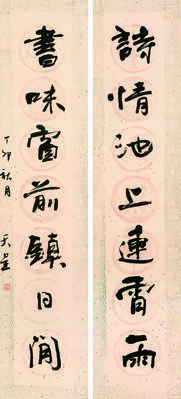 詩情池上連宵雨
書味窗前鎮日閒
丁卯秋月 天